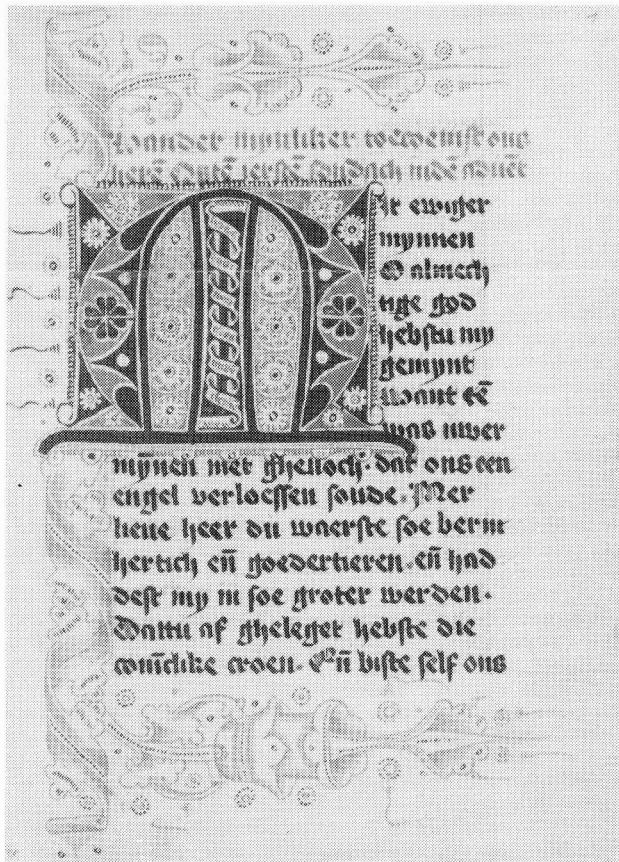 Uander mynliker toecoemst ons
herē Optē ierstē sondach indē aduēt
M it ewiger
mynnen
O almech
tige god
hebstu my
gemynt
Want tē
was uwer
mȳnen met ghenoch. dat ons een
engel verloessen soude. Mer
lieue heer du waerste soe berm
hertich eñ goedertieren. eñ had
dest my in soe groter werden.
Dattu af gheleget hebste die
conīclike croen. Eñ biste self ons